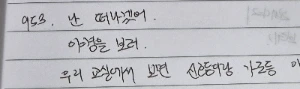 953. 난 떠나겠어.
야경을 보러.
우리 교실에서 보면 신호등이랑 가로등